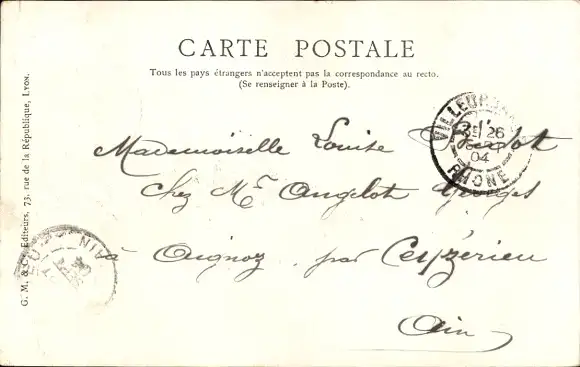 CARTE POSTALE
Tous les pays étrangers n'acceptent pas la correspondance au recto.
(Se renseigner à la Poste).
G. M. & C., Éditeurs, 73, rue de la République, Lyon.
VILLEURBANNE
26
04
RHONE
Mademoiselle Louise
Chez Mr Angelot Georges
à Ceyzérieu
par
Ain
AIN